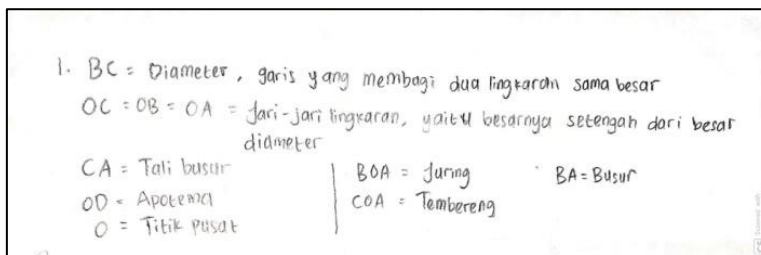 1. BC = Diameter, garis yang membagi dua lingkaran sama besar
OC = OB = OA = Jari-jari lingkaran, yaitu besarnya setengah dari besar
diameter
CA = Tali busur
OD = Apotema
O = Titik pusat
BOA = Juring
COA = Tembereng
BA = Busur